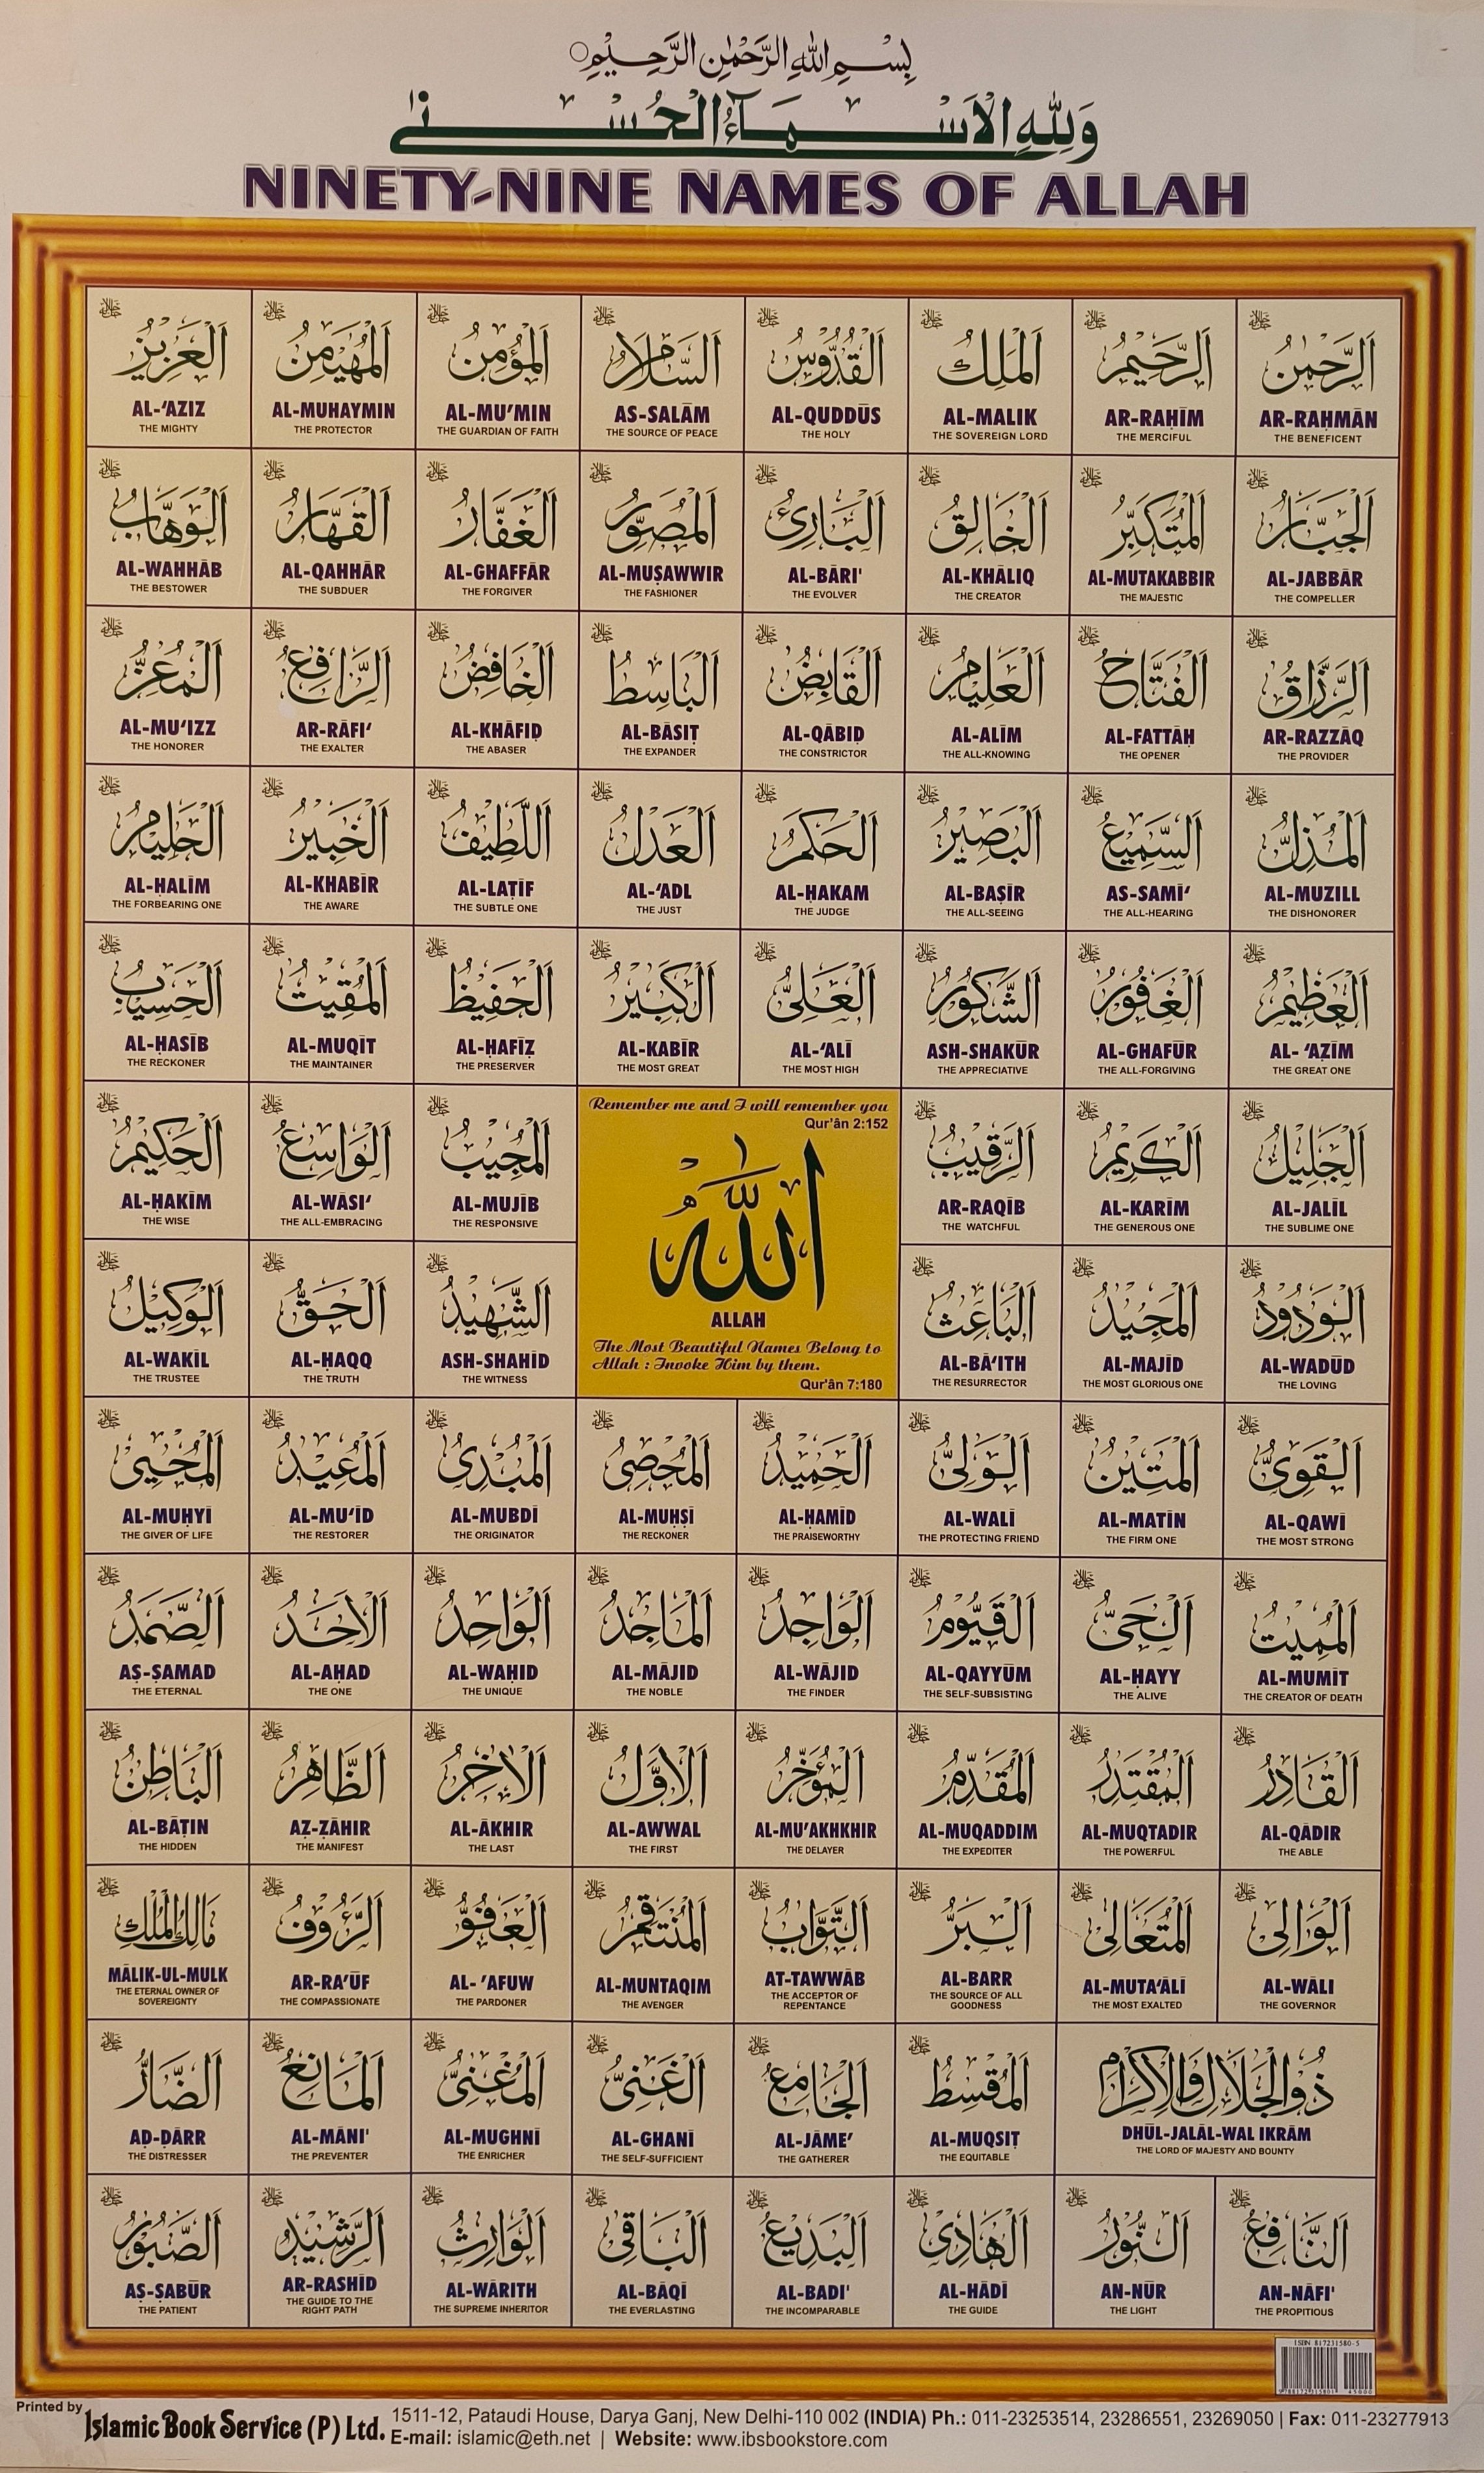 بِسْمِ اللهِ الرَّحْمٰنِ الرَّحِيْمِ
وَلِلّٰهِ الْاَسْمَآءُ الْحُسْنٰى
NINETY-NINE NAMES OF ALLAH
اَلرَّحْمٰنُ
AR-RAḤMĀN
THE BENEFICENT
اَلرَّحِيْمُ
AR-RAḤĪM
THE MERCIFUL
اَلْمَلِكُ
AL-MALIK
THE SOVEREIGN LORD
اَلْقُدُّوْسُ
AL-QUDDŪS
THE HOLY
اَلسَّلَامُ
AS-SALĀM
THE SOURCE OF PEACE
اَلْمُؤْمِنُ
AL-MU'MIN
THE GUARDIAN OF FAITH
اَلْمُهَيْمِنُ
AL-MUHAYMIN
THE PROTECTOR
اَلْعَزِيْزُ
AL-‘AZIZ
THE MIGHTY
اَلْجَبَّارُ
AL-JABBĀR
THE COMPELLER
اَلْمُتَكَبِّرُ
AL-MUTAKABBIR
THE MAJESTIC
اَلْخَالِقُ
AL-KHĀLIQ
THE CREATOR
اَلْبَارِئُ
AL-BĀRI'
THE EVOLVER
اَلْمُصَوِّرُ
AL-MUṢAWWIR
THE FASHIONER
اَلْغَفَّارُ
AL-GHAFFĀR
THE FORGIVER
اَلْقَهَّارُ
AL-QAHHĀR
THE SUBDUER
اَلْوَهَّابُ
AL-WAHHĀB
THE BESTOWER
اَلرَّزَّاقُ
AR-RAZZĀQ
THE PROVIDER
اَلْفَتَّاحُ
AL-FATTĀḤ
THE OPENER
اَلْعَلِيْمُ
AL-ALĪM
THE ALL-KNOWING
اَلْقَابِضُ
AL-QĀBIḌ
THE CONSTRICTOR
اَلْبَاسِطُ
AL-BĀSIṬ
THE EXPANDER
اَلْخَافِضُ
AL-KHĀFIḌ
THE ABASER
اَلرَّافِعُ
AR-RĀFI‘
THE EXALTER
اَلْمُعِزُّ
AL-MU‘IZZ
THE HONORER
اَلْمُذِلُّ
AL-MUZILL
THE DISHONORER
اَلسَّمِيْعُ
AS-SAMĪ‘
THE ALL-HEARING
اَلْبَصِيْرُ
AL-BAṢĪR
THE ALL-SEEING
اَلْحَكَمُ
AL-ḤAKAM
THE JUDGE
اَلْعَدْلُ
AL-‘ADL
THE JUST
اَللَّطِيْفُ
AL-LAṬĪF
THE SUBTLE ONE
اَلْخَبِيْرُ
AL-KHABĪR
THE AWARE
اَلْحَلِيْمُ
AL-ḤALĪM
THE FORBEARING ONE
اَلْعَظِيْمُ
AL- ‘AẒĪM
THE GREAT ONE
اَلْغَفُوْرُ
AL-GHAFŪR
THE ALL-FORGIVING
اَلشَّكُوْرُ
ASH-SHAKŪR
THE APPRECIATIVE
اَلْعَلِىُّ
AL-‘ALĪ
THE MOST HIGH
اَلْكَبِيْرُ
AL-KABĪR
THE MOST GREAT
اَلْحَفِيْظُ
AL-ḤAFĪẒ
THE PRESERVER
اَلْمُقِيْتُ
AL-MUQĪT
THE MAINTAINER
اَلْحَسِيْبُ
AL-ḤASĪB
THE RECKONER
اَلْجَلِيْلُ
AL-JALĪL
THE SUBLIME ONE
اَلْكَرِيْمُ
AL-KARĪM
THE GENEROUS ONE
اَلرَّقِيْبُ
AR-RAQĪB
THE WATCHFUL
Remember me and I will remember you
Qur'ân 2:152
اَللّٰهُ
ALLAH
The Most Beautiful Names Belong to
Allah : Invoke Him by them.
Qur'ân 7:180
اَلْمُجِيْبُ
AL-MUJĪB
THE RESPONSIVE
اَلْوَاسِعُ
AL-WĀSI‘
THE ALL-EMBRACING
اَلْحَكِيْمُ
AL-ḤAKĪM
THE WISE
اَلْوَدُوْدُ
AL-WADŪD
THE LOVING
اَلْمَجِيْدُ
AL-MAJĪD
THE MOST GLORIOUS ONE
اَلْبَاعِثُ
AL-BĀ‘ITH
THE RESURRECTOR
اَلشَّهِيْدُ
ASH-SHAHĪD
THE WITNESS
اَلْحَقُّ
AL-ḤAQQ
THE TRUTH
اَلْوَكِيْلُ
AL-WAKĪL
THE TRUSTEE
اَلْقَوِىُّ
AL-QAWĪ
THE MOST STRONG
اَلْمَتِيْنُ
AL-MATĪN
THE FIRM ONE
اَلْوَلِىُّ
AL-WALĪ
THE PROTECTING FRIEND
اَلْحَمِيْدُ
AL-ḤAMĪD
THE PRAISEWORTHY
اَلْمُحْصِىُ
AL-MUḤṢĪ
THE RECKONER
اَلْمُبْدِىُ
AL-MUBDĪ
THE ORIGINATOR
اَلْمُعِيْدُ
AL-MU‘ĪD
THE RESTORER
اَلْمُحْيِىْ
AL-MUḤYĪ
THE GIVER OF LIFE
اَلْمُمِيْتُ
AL-MUMĪT
THE CREATOR OF DEATH
اَلْحَىُّ
AL-ḤAYY
THE ALIVE
اَلْقَيُّوْمُ
AL-QAYYŪM
THE SELF-SUBSISTING
اَلْوَاجِدُ
AL-WĀJID
THE FINDER
اَلْمَاجِدُ
AL-MĀJID
THE NOBLE
اَلْوَاحِدُ
AL-WAḤID
THE UNIQUE
اَلْاَحَدُ
AL-AḤAD
THE ONE
اَلصَّمَدُ
AṢ-ṢAMAD
THE ETERNAL
اَلْقَادِرُ
AL-QĀDIR
THE ABLE
اَلْمُقْتَدِرُ
AL-MUQTADIR
THE POWERFUL
اَلْمُقَدِّمُ
AL-MUQADDIM
THE EXPEDITER
اَلْمُؤَخِّرُ
AL-MU'AKHKHIR
THE DELAYER
اَلْاَوَّلُ
AL-AWWAL
THE FIRST
اَلْاٰخِرُ
AL-ĀKHIR
THE LAST
اَلظَّاهِرُ
AẒ-ẒĀHIR
THE MANIFEST
اَلْبَاطِنُ
AL-BĀṬIN
THE HIDDEN
اَلْوَالِى
AL-WĀLI
THE GOVERNOR
اَلْمُتَعَالِى
AL-MUTA‘ĀLĪ
THE MOST EXALTED
اَلْبَرُّ
AL-BARR
THE SOURCE OF ALL
GOODNESS
اَلتَّوَّابُ
AT-TAWWĀB
THE ACCEPTOR OF
REPENTANCE
اَلْمُنْتَقِمُ
AL-MUNTAQIM
THE AVENGER
اَلْعَفُوُّ
AL- 'AFUW
THE PARDONER
اَلرَّؤُوْفُ
AR-RA'ŪF
THE COMPASSIONATE
مَالِكُ الْمُلْكِ
MĀLIK-UL-MULK
THE ETERNAL OWNER OF
SOVEREIGNTY
ذُوالْجَلَالِ وَالْاِكْرَامِ
DHŪL-JALĀL-WAL IKRĀM
THE LORD OF MAJESTY AND BOUNTY
اَلْمُقْسِطُ
AL-MUQSIṬ
THE EQUITABLE
اَلْجَامِعُ
AL-JĀME'
THE GATHERER
اَلْغَنِىُّ
AL-GHANĪ
THE SELF-SUFFICIENT
اَلْمُغْنِىُّ
AL-MUGHNĪ
THE ENRICHER
اَلْمَانِعُ
AL-MĀNI'
THE PREVENTER
اَلضَّارُّ
AḌ-ḌĀRR
THE DISTRESSER
اَلنَّافِعُ
AN-NĀFI'
THE PROPITIOUS
اَلنُّوْرُ
AN-NŪR
THE LIGHT
اَلْهَادِى
AL-HĀDĪ
THE GUIDE
اَلْبَدِيْعُ
AL-BADI'
THE INCOMPARABLE
اَلْبَاقِى
AL-BĀQĪ
THE EVERLASTING
اَلْوَارِثُ
AL-WĀRITH
THE SUPREME INHERITOR
اَلرَّشِيْدُ
AR-RASHĪD
THE GUIDE TO THE
RIGHT PATH
اَلصَّبُوْرُ
AṢ-ṢABŪR
THE PATIENT
ISBN 817231580-5
Printed by Islamic Book Service (P) Ltd. 1511-12, Pataudi House, Darya Ganj, New Delhi-110 002 (INDIA) Ph.: 011-23253514, 23286551, 23269050 | Fax: 011-23277913
E-mail: islamic@eth.net | Website: www.ibsbookstore.com